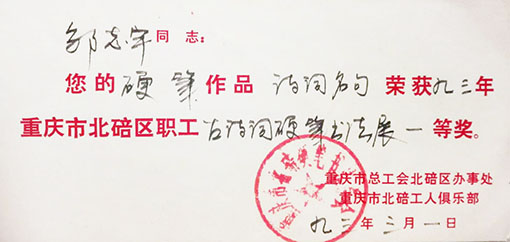 邹志宇同志：
您的硬笔作品诗词名句荣获九三年
重庆市北碚区职工古诗词硬笔书法展一等奖。
重庆市总工会北碚区办事处
重庆市北碚工人俱乐部
九三年三月一日